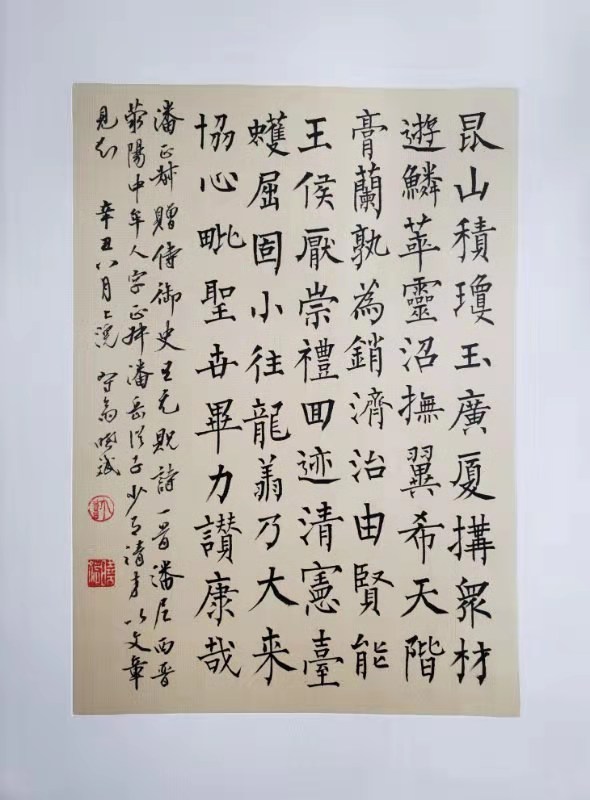 昆山積瓊玉廣厦搆衆材
遊鱗萃靈沼撫翼希天階
膏蘭孰為銷濟治由賢能
王侯厭崇禮囬迹清憲臺
蠖屈固小往龍翥乃大来
協心毗聖世畢力讃康哉
潘正叔贈侍御史王元貺詩一首潘尼西晉
滎陽中牟人字正叔潘岳從子少有清才以文章
見知 辛丑八月上浣